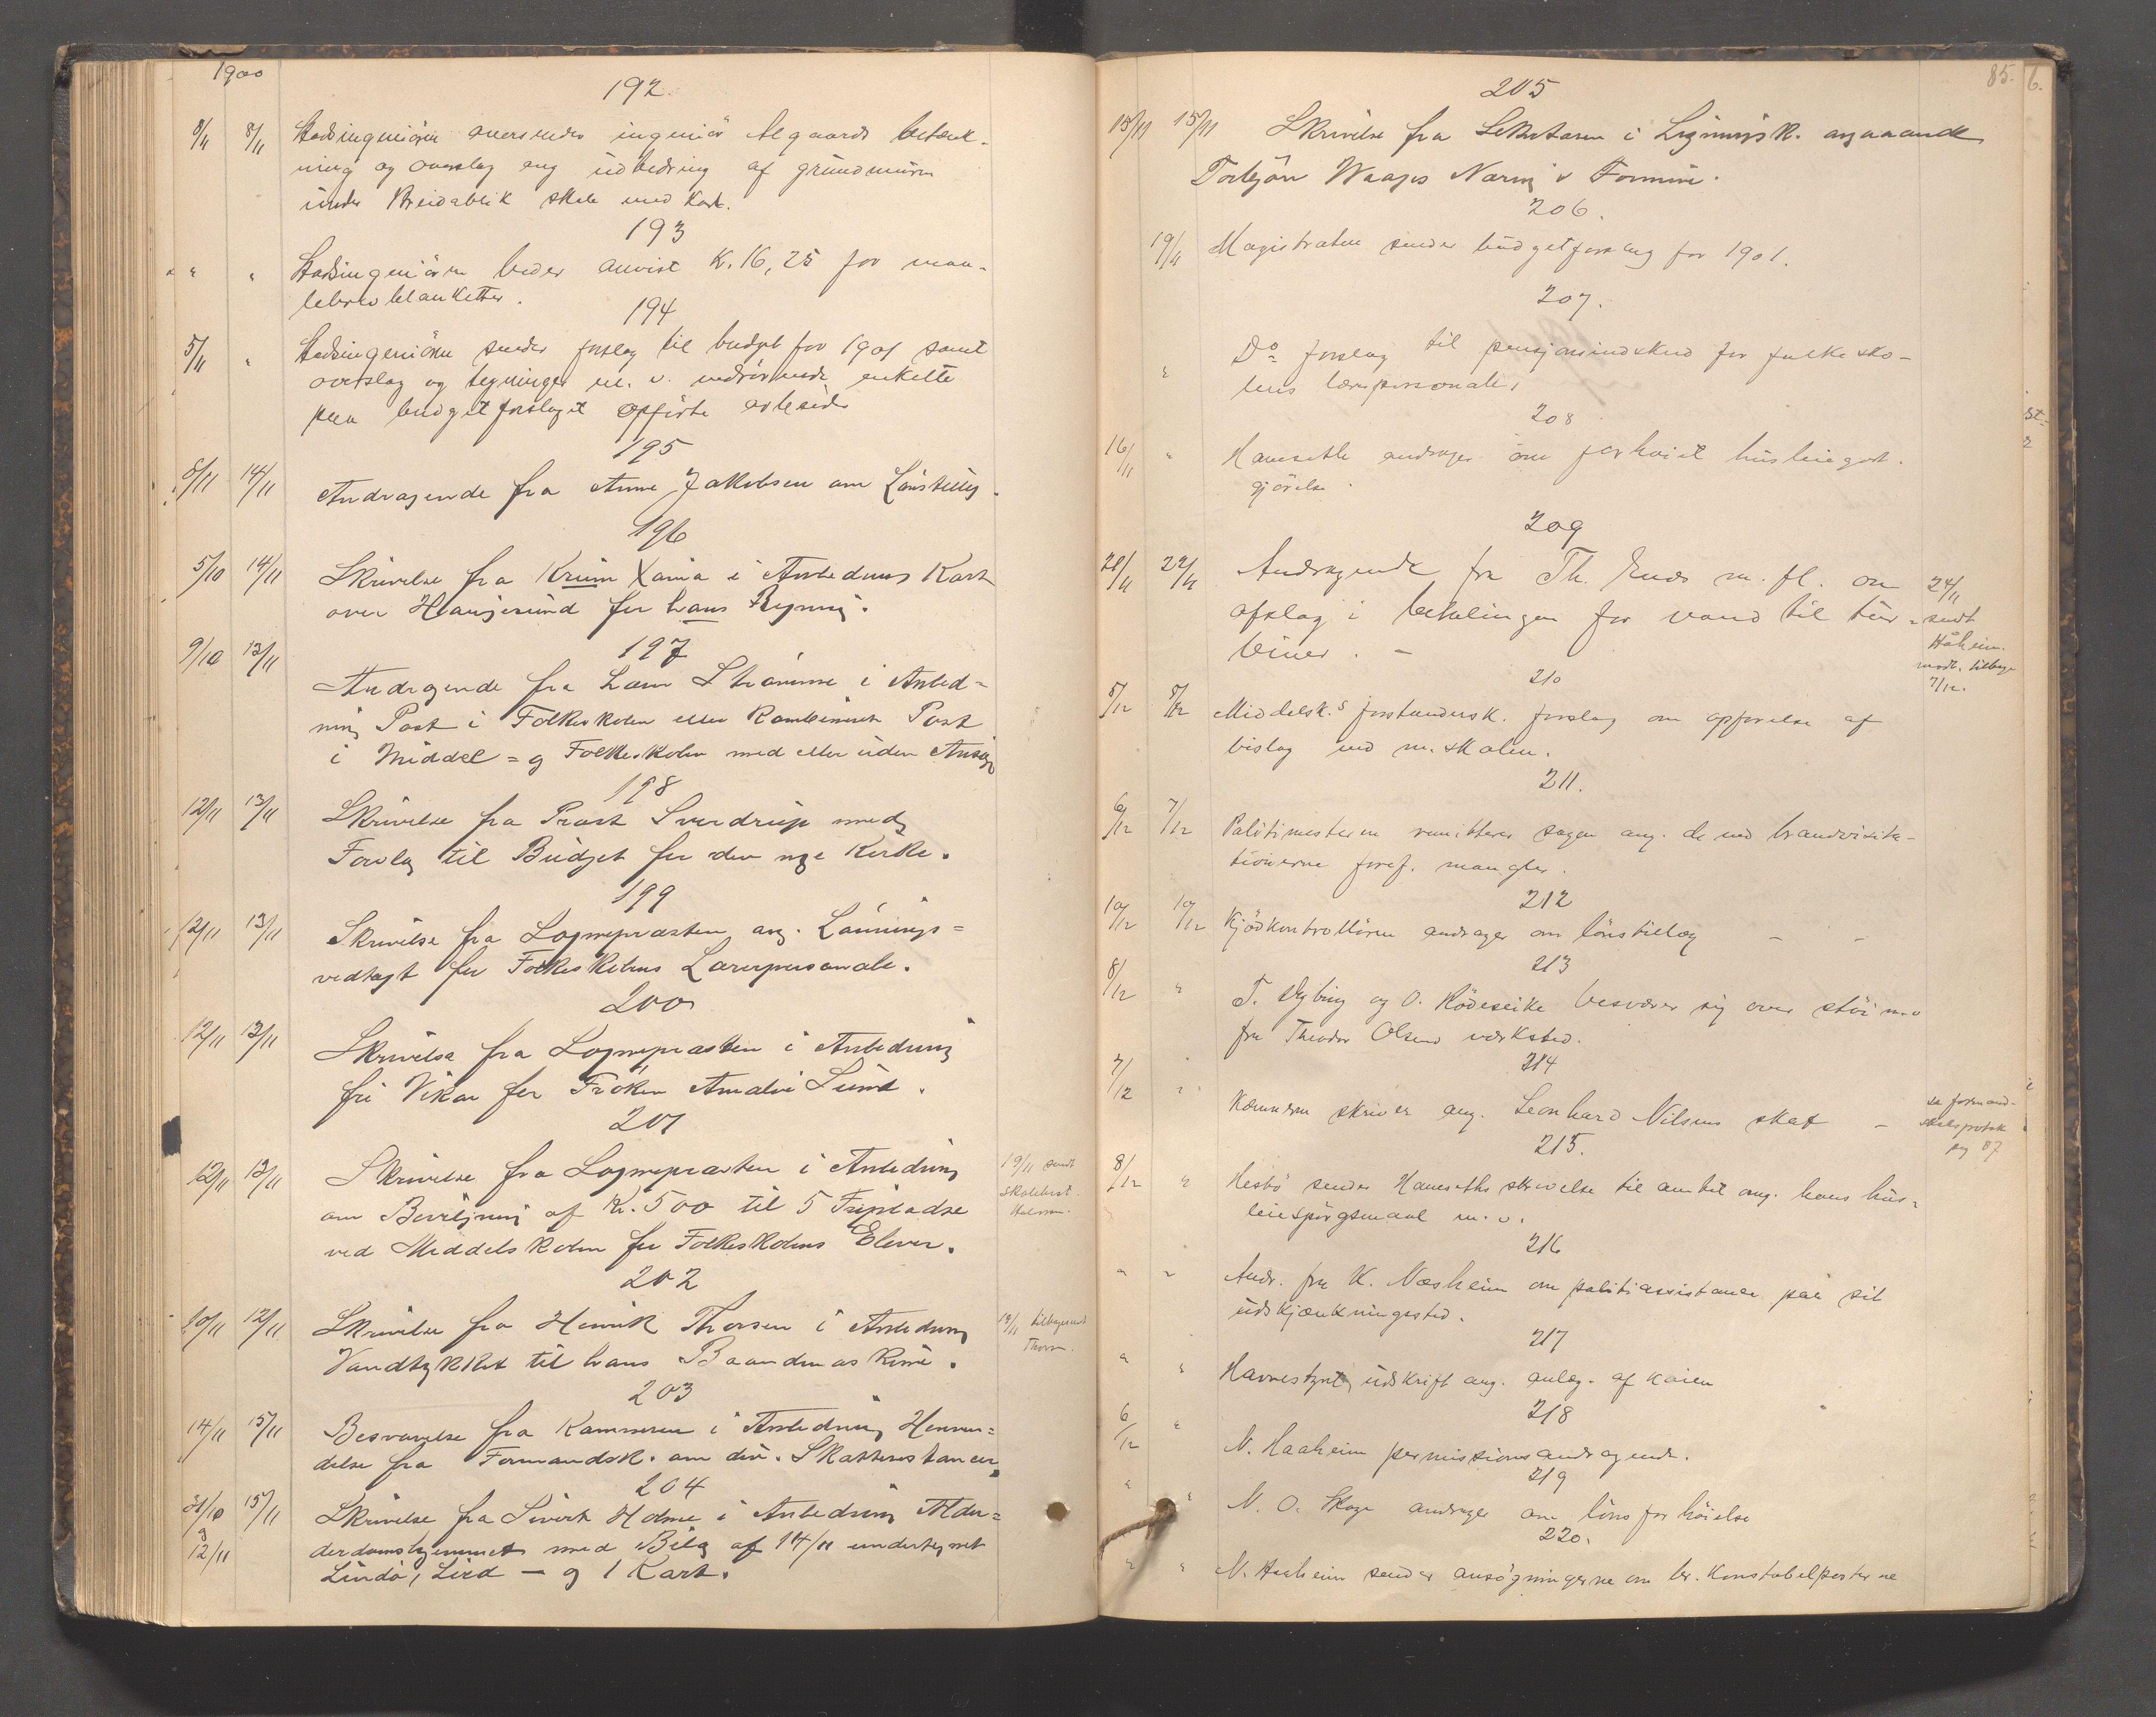 1900
192.
8/11 8/11 Stadsingeniören oversender ingeniör ALgaards betænk-
ning og overslag ang udbedring af grundmuren
under Breidablik skole med kart.
193
" " Stadsingeniören beder anvist K. 16,25 for maa-
lebrevblanketter.
194
5/11 " Stadsingeniören sender forslag til budget for 1901 samt
overslag og tegninger m. v. vedrörende enkelte
paa budgetforslaget opförte arbeider
195
8/11 14/11 Andragende fra Anne Jakobsen om Lönstillæg.
196
5/10 14/11 Skrivelse fra Krüm Xania i Anledning Kart
over Haugesund for hans Regning.
197
9/10 13/11
Andragende fra Lærer Strömme i Anled=
ning Post i Folkeskolen eller Kombineret Post
i Middel= og Folkeskolen med eller uden
198
12/11 13/11 Skrivelse fra Provst Sverdrup med
Forslag til Budget for den nye Kirke.
199
12/11 13/11 Skrivelse fra Sognepræsten ang. Lönnings=
vedtægt for Folkeskolens Lærerpersonale.
200
12/11 13/11 Skrivelse fra Sognepræsten i Anledning
fri Vikar for Fröken Amalie Sund.
201
12/11 13/11 Skrivelse fra Sognepræsten i Anledning 19/11 sendt
om Bevilgning af Kr. 500 til 5 Fripladse skolebest.
ved Middelskolen for Folkeskolens Elever.
202
10/11 12/11 Skrivelse fra Henrik Thorsen i Anledning tilbagesendt
Vandtrykket til hans Brandmaskine. Thorsen.
203
14/11 15/11 Besvarelse fra Kæmneren i Anledning Henven=
delse fra Formandsk. om div. Skatterestancer.
204
31/10 15/11 Skrivelse fra Sivert Holme i Anledning Alder=
og 12/11 derdomshjemmet med Bilag af 14/11 undertegnet
Lindö, Lied – og 1 Kart.
85.
6.
205
15/11 15/11 Skrivelse fra Sekretæren i Ligningsk. angaaende
Torbjörn Waages Næring & Formue.
206.
19/11 Magistraten sender budgetforslag for 1901.
207.
" Do forslag til pensjonsindskud for folkesko-
lens lærerpersonale,
208
16/11 " Hameseth andrager om forhöiet husleiegodt-
gjörelse.
209
22/11 Andragende fra Th. m. fl. om 24/11
afslag i betalingen for vand til tur- sendt
biner. – Håheim.
modt. tilbage
7/12.
210
5/12 8/12 Middelsk.s forstandersk. forslag om opförelse af
bislag ved m. skolen.
211.
6/12 7/12 Politimesteren remitterer sagen ang. de ved brandvisita-
tionerne foref. mangler.
212
10/12 10/12 Kjödkontrollören andrager om lönstillæg – –
213
8/12 " T. Nybing og O. Rödeseike besværer sig over stöi m.v
fra Theodor Olsens værksted.
214
7/12 " Kæmneren skriver ang. Leonhard Nilsens skat – se formand-
skabsprotok
pg 87
215.
8/12 " Hesbö sender Hameseths skrivelse til amtet ang. hans hus-
leiespörgsmaal m. v.
216
" " Andr. fra K. Næsheim om politiassistance paa sit
udskjænkningssted.
217
" " Havnestyrets udskrift ang. anlæg. af kaien
218
6/12 " N. Haaheim permissionsandragende.
219
" " N. O. Skoge andrager om lönsforhöielse
220.
" " N. Haaheim sender ansögningerne om ler. Konstabelposterne